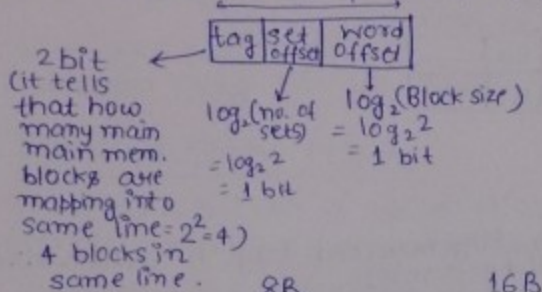 tag set offset word offset
2 bit
(it tells
that how
many main
main mem.
blocks are
mapping into
same line = 2² = 4)
∴ 4 blocks in
same line.
log₂(no. of
sets)
= log₂ 2
= 1 bit
log₂(Block size)
= log₂ 2
= 1 bit
8B 16B